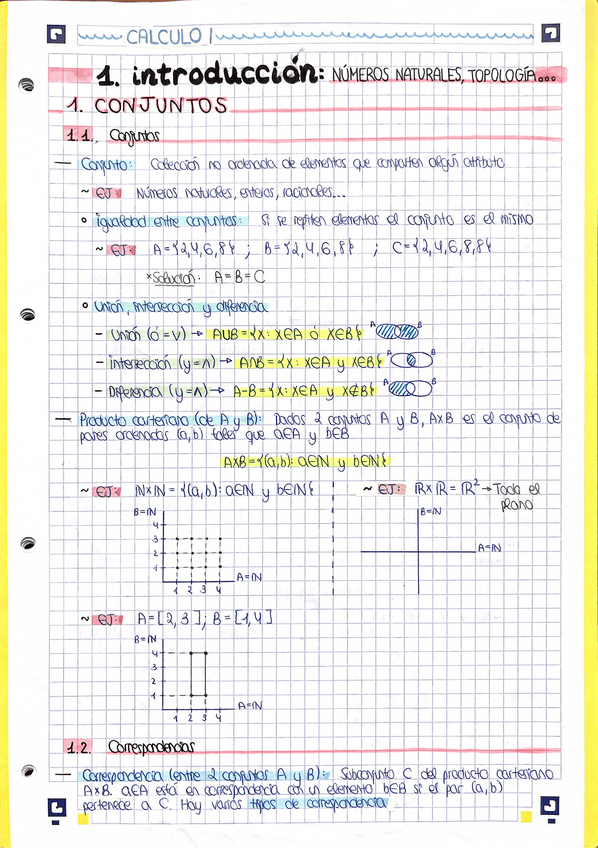 CALCULO I
1. introducción: NÚMEROS NATURALES, TOPOLOGÍA...
1. CONJUNTOS
1.1. Conjuntos
— Conjunto: Colección no ordenada de elementos que comparten algún atributo
~ EJ: Números naturales, enteros, racionales...
° igualdad entre conjuntos: Si se repiten elementos el conjunto es el mismo
~ EJ: A={2,4,6,8} ; B={2,4,6,8} ; C={2,4,6,8,8}
*Solución: A=B=C
° Unión, intersección y diferencia
- Unión (ó=∨) → A∪B={x: x∈A ó x∈B} A B
- intersección (y=∧) → A∩B={x: x∈A y x∈B} A B
- Diferencia (y=∧) → A-B={x: x∈A y x∉B} A B
— Producto cartesiano (de A y B): Dados 2 conjuntos A y B, AxB es el conjunto de
pares ordenados (a,b) tales que a∈A y b∈B
AxB={(a,b): a∈ℕ y b∈ℕ}
~ EJ: ℕxℕ={(a,b): a∈ℕ y b∈ℕ}
B=ℕ
4
3
2
1
1 2 3 4
A=ℕ
~ EJ: ℝxℝ=ℝ² → Todo el
plano
B=ℕ
A=ℕ
~ EJ: A=[2,3]; B=[1,4]
B=ℕ
4
3
2
1
1 2 3 4
A=ℕ
1.2. Correspondencias
— Correspondencia (entre 2 conjuntos A y B): Subconjunto C del producto cartesiano
AxB. a∈A está en correspondencia con un elemento b∈B si el par (a,b)
pertenece a C. Hay varios tipos de correspondencia